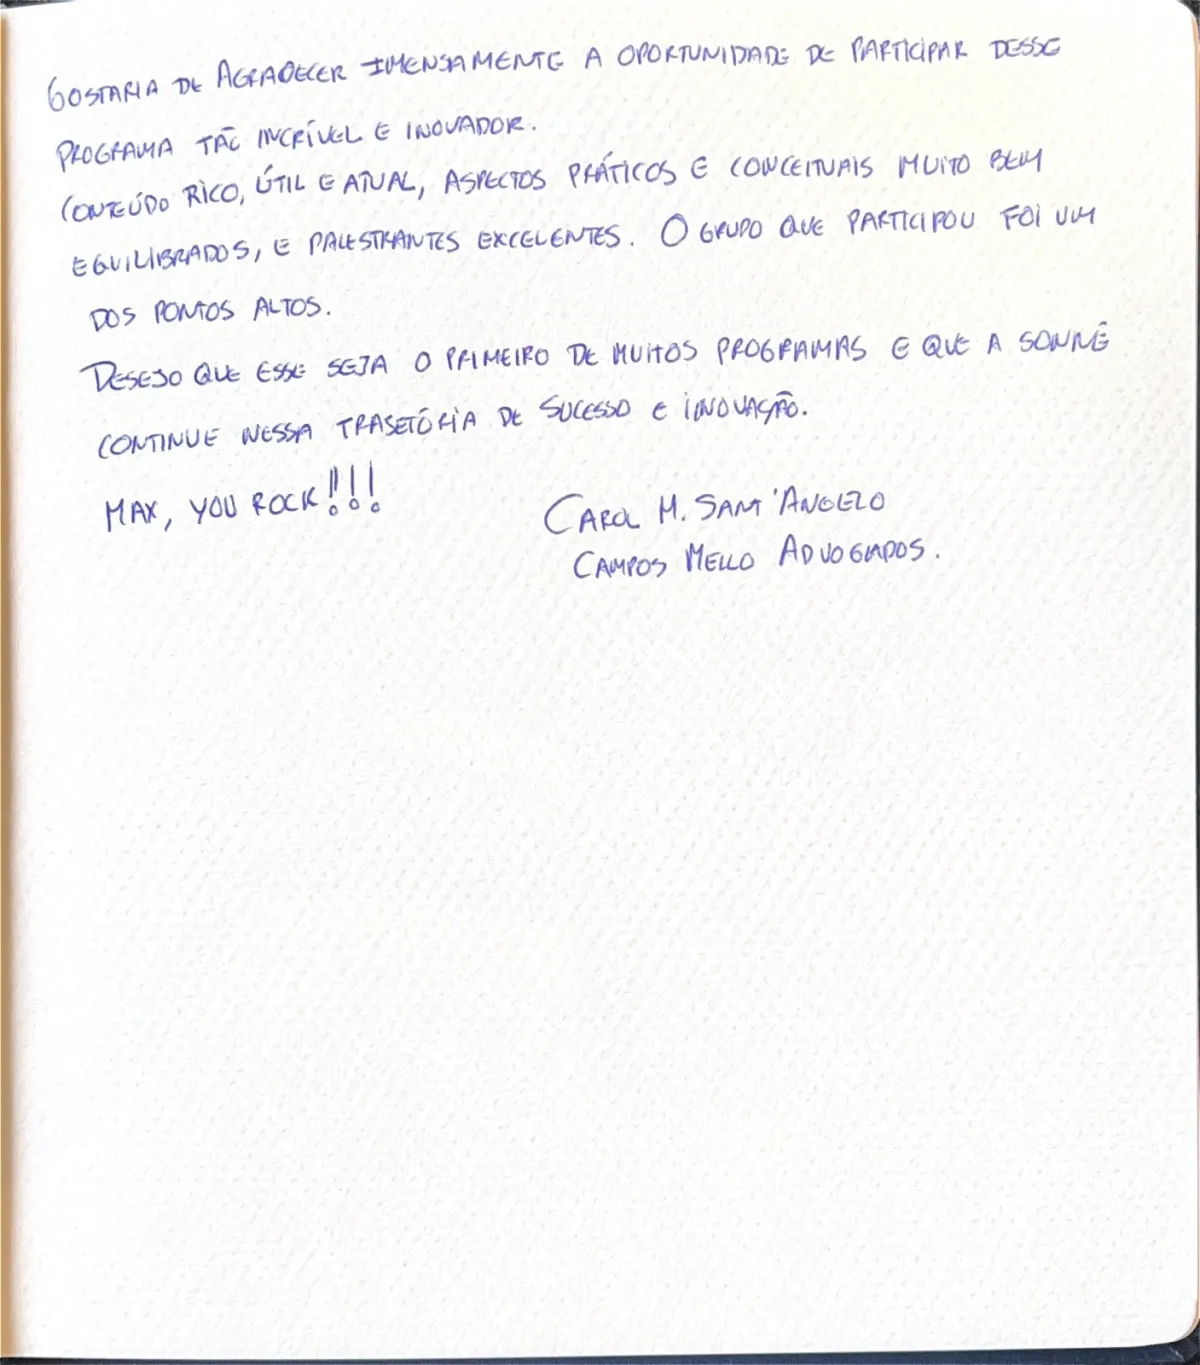 GOSTARIA DE AGRADECER IMENSAMENTE A OPORTUNIDADE DE PARTICIPAR DESSE
PROGRAMA TÃO INCRÍVEL E INOVADOR.
CONTEÚDO RICO, ÚTIL E ATUAL, ASPECTOS PRÁTICOS E CONCEITUAIS MUITO BEM
EQUILIBRADOS, E PALESTRANTES EXCELENTES. O GRUPO QUE PARTICIPOU FOI UM
DOS PONTOS ALTOS.
DESEJO QUE ESSE SEJA O PRIMEIRO DE MUITOS PROGRAMAS E QUE A SONNÊ
CONTINUE NESSA TRAJETÓRIA DE SUCESSO E INOVAÇÃO.
MAX, YOU ROCK!!!!
CAROL M. SANT'ANGELO
CAMPOS MELLO ADVOGADOS.